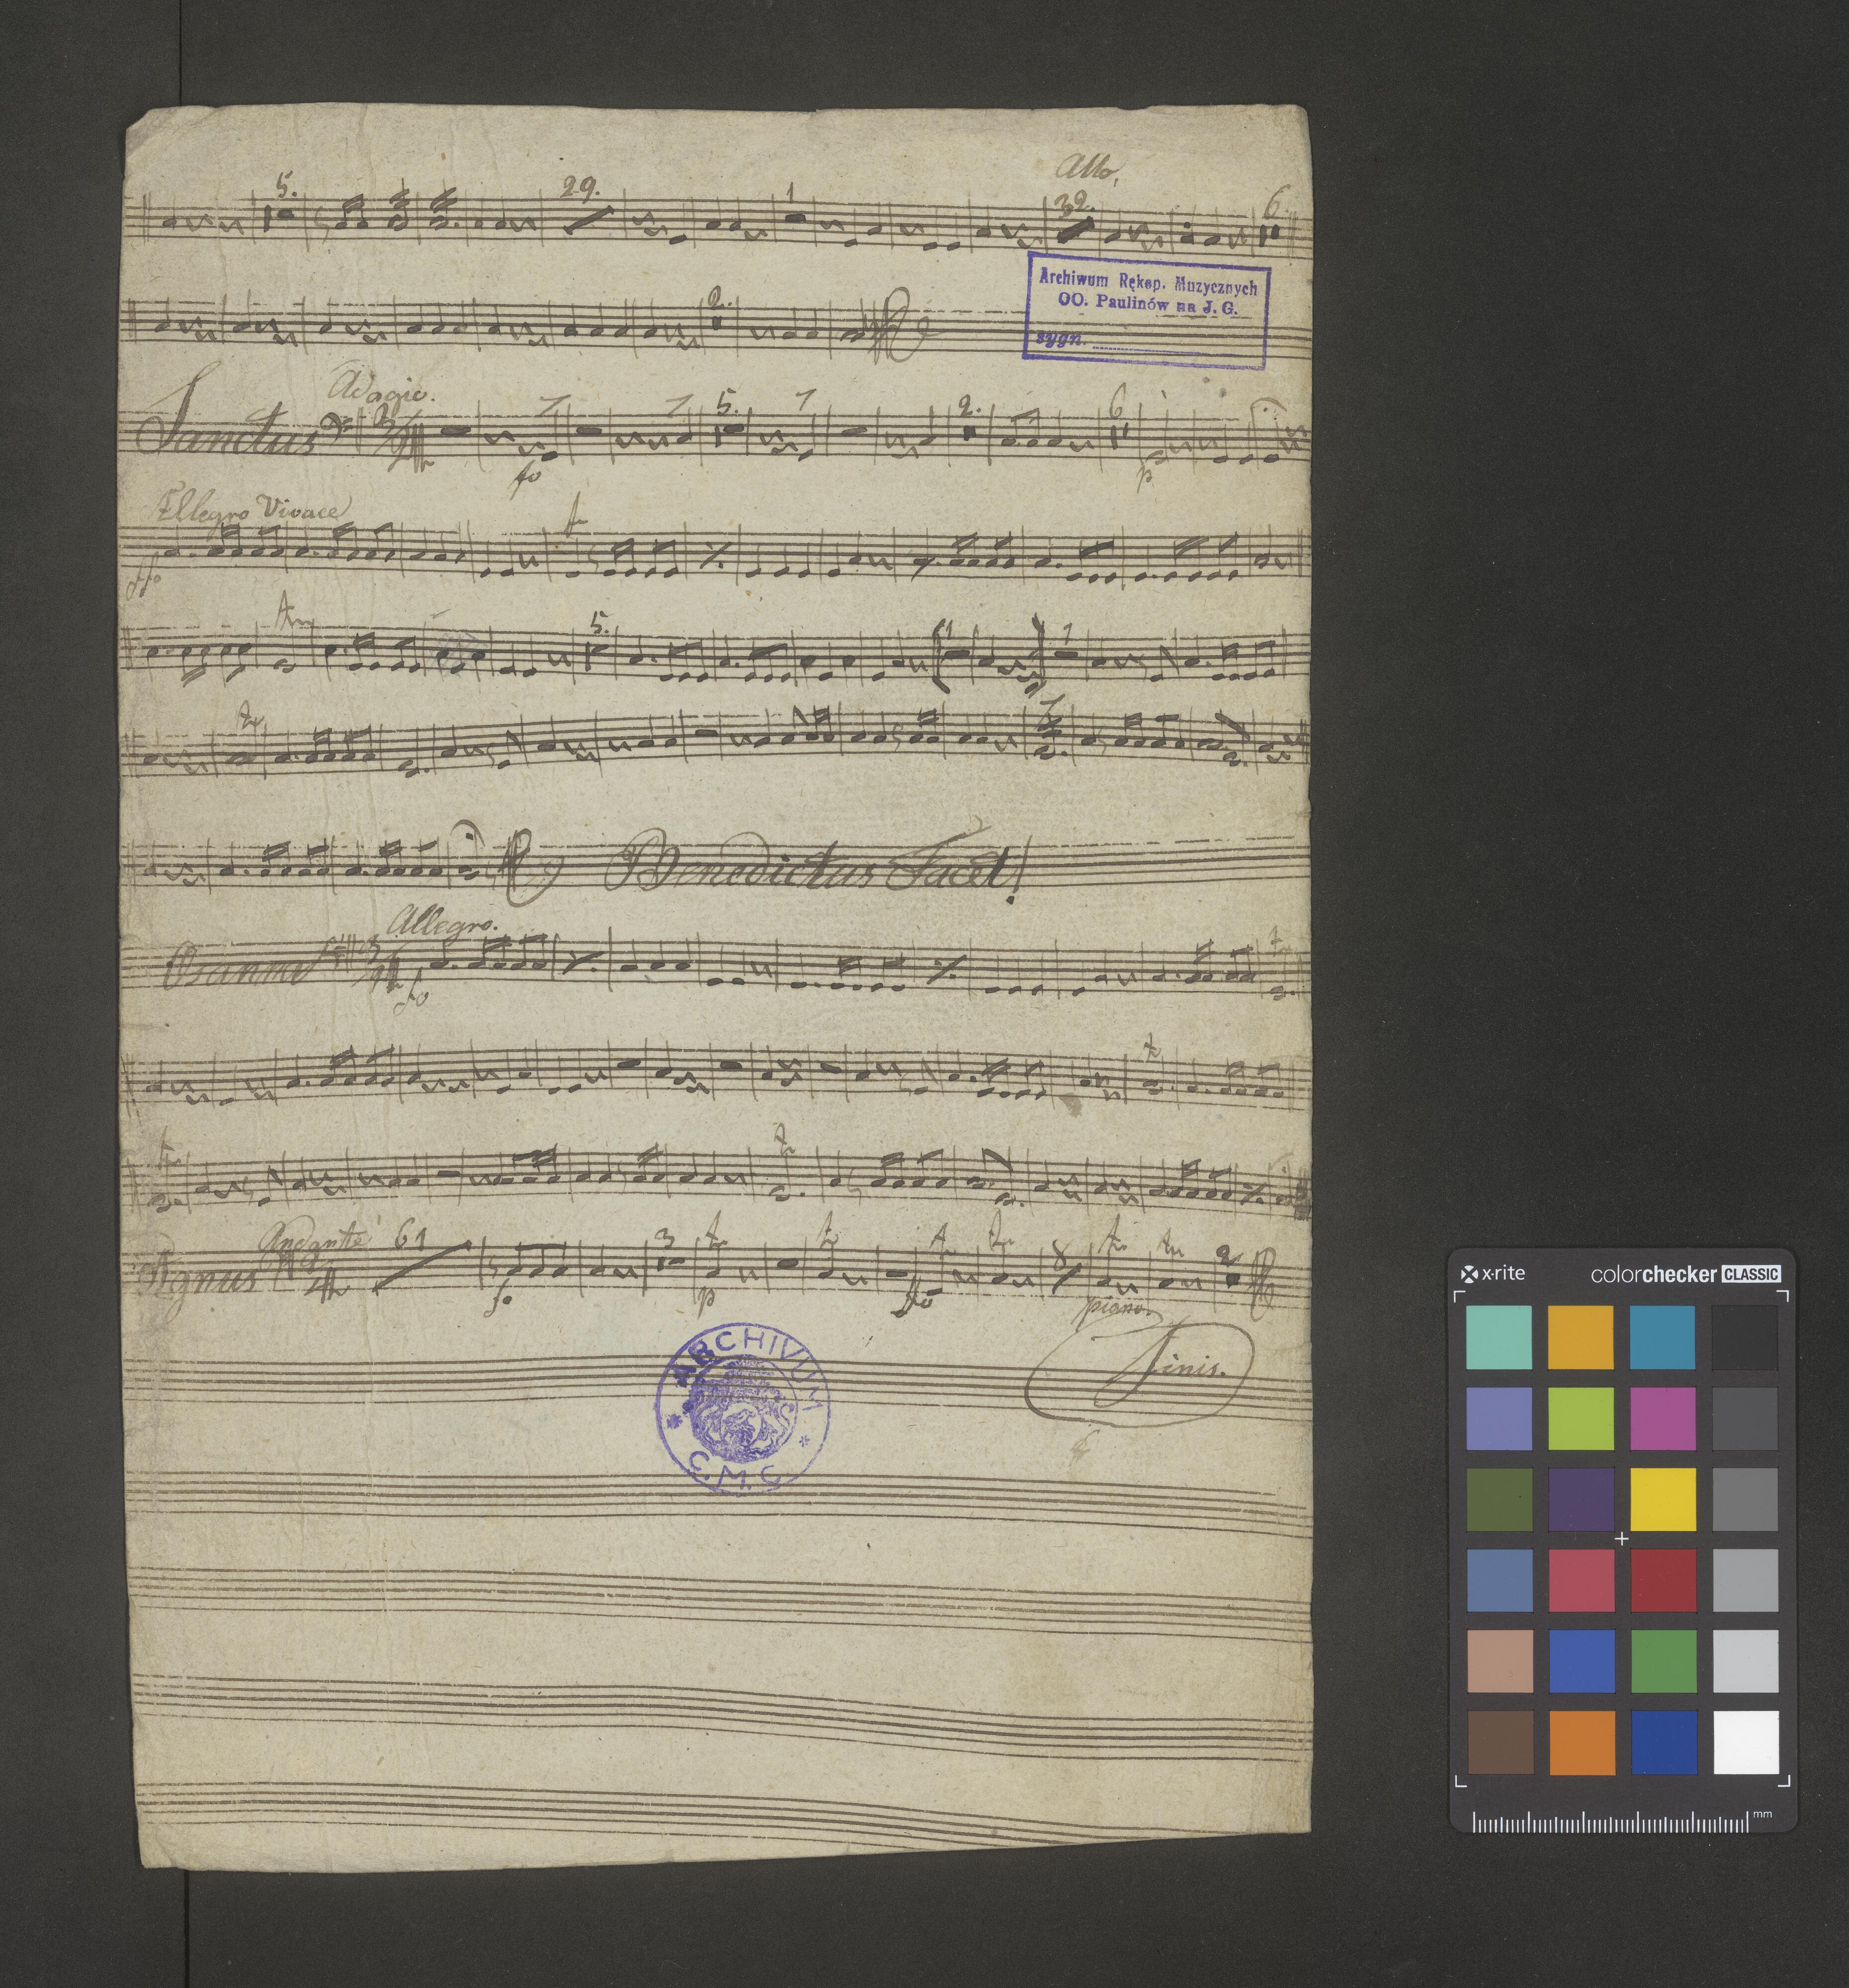 5. 29. 1 Allo, 32. 6
Archiwum Rękop. Muzycznych
OO. Paulinów na J. G.
sygn.
2.
Adagio.
Sanctus 5. 2. 6
fo p
Allegro Vivace
ffo
5. 1 1
Benedictus Tacet!
Allegro.
Osanna
fo
Andante 61
Agnus 3 8 2
fo p ffo piano.
Finis.
ARCHIVUM
C.M.C.
x-rite colorchecker CLASSIC
mm